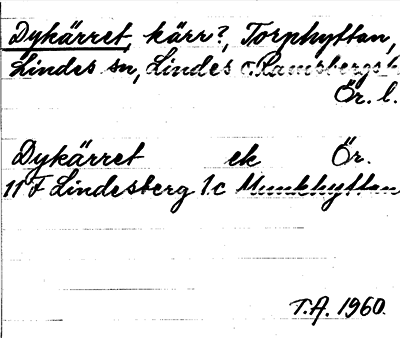 Dykärret, kärr?, Torphyttan,
Lindes sn, Lindes o. Ramsbergs h.
Ör. l.
Dykärret ek Ör.
11 F Lindesberg 1.c Munkhyttan
T.A. 1960.